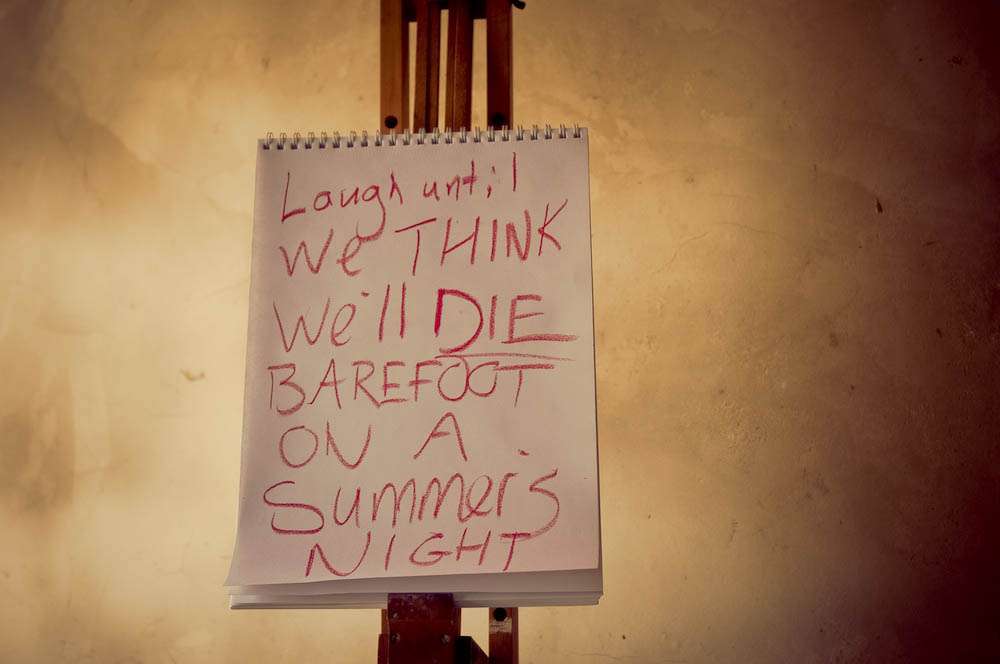 Laugh until
We THINK
We'll DIE
BAREFOOT
ON A
Summer's
NIGHT